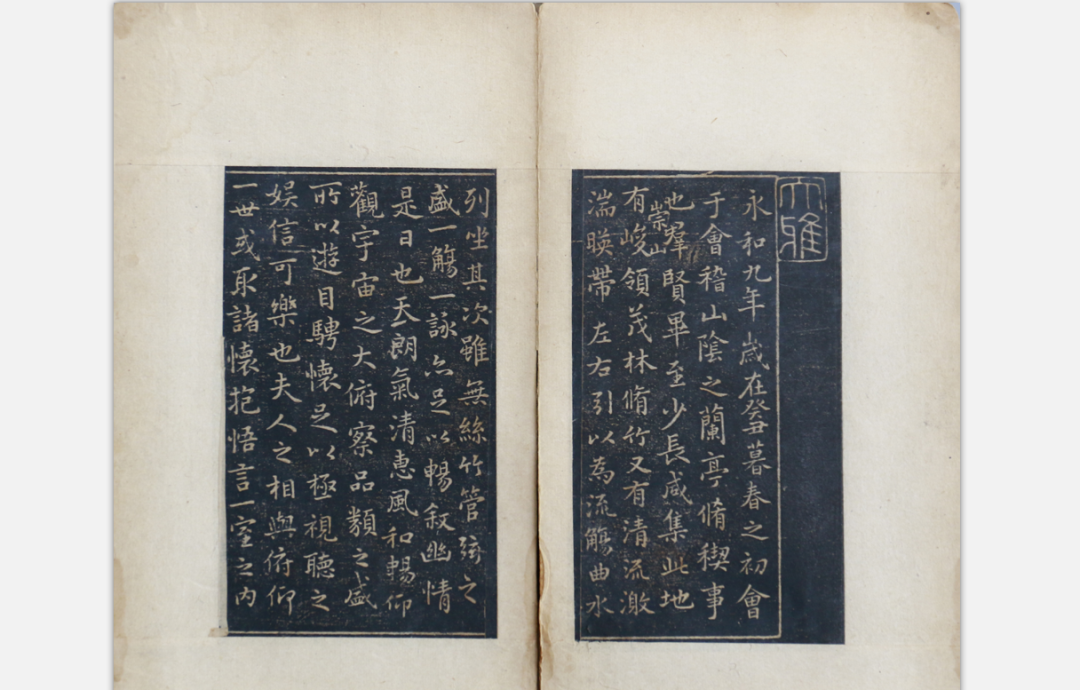 大雅
永和九年歲在癸丑暮春之初會
于會稽山陰之蘭亭脩稧事
也羣賢畢至少長咸集此地
有崇山峻領茂林脩竹又有清流激
湍暎帶左右引以為流觴曲水
列坐其次雖無絲竹管弦之
盛一觴一詠亦足以暢叙幽情
是日也天朗氣清惠風和暢仰
觀宇宙之大俯察品類之盛
所以遊目騁懷足以極視聽之
娛信可樂也夫人之相與俯仰
一世或取諸懷抱悟言一室之內